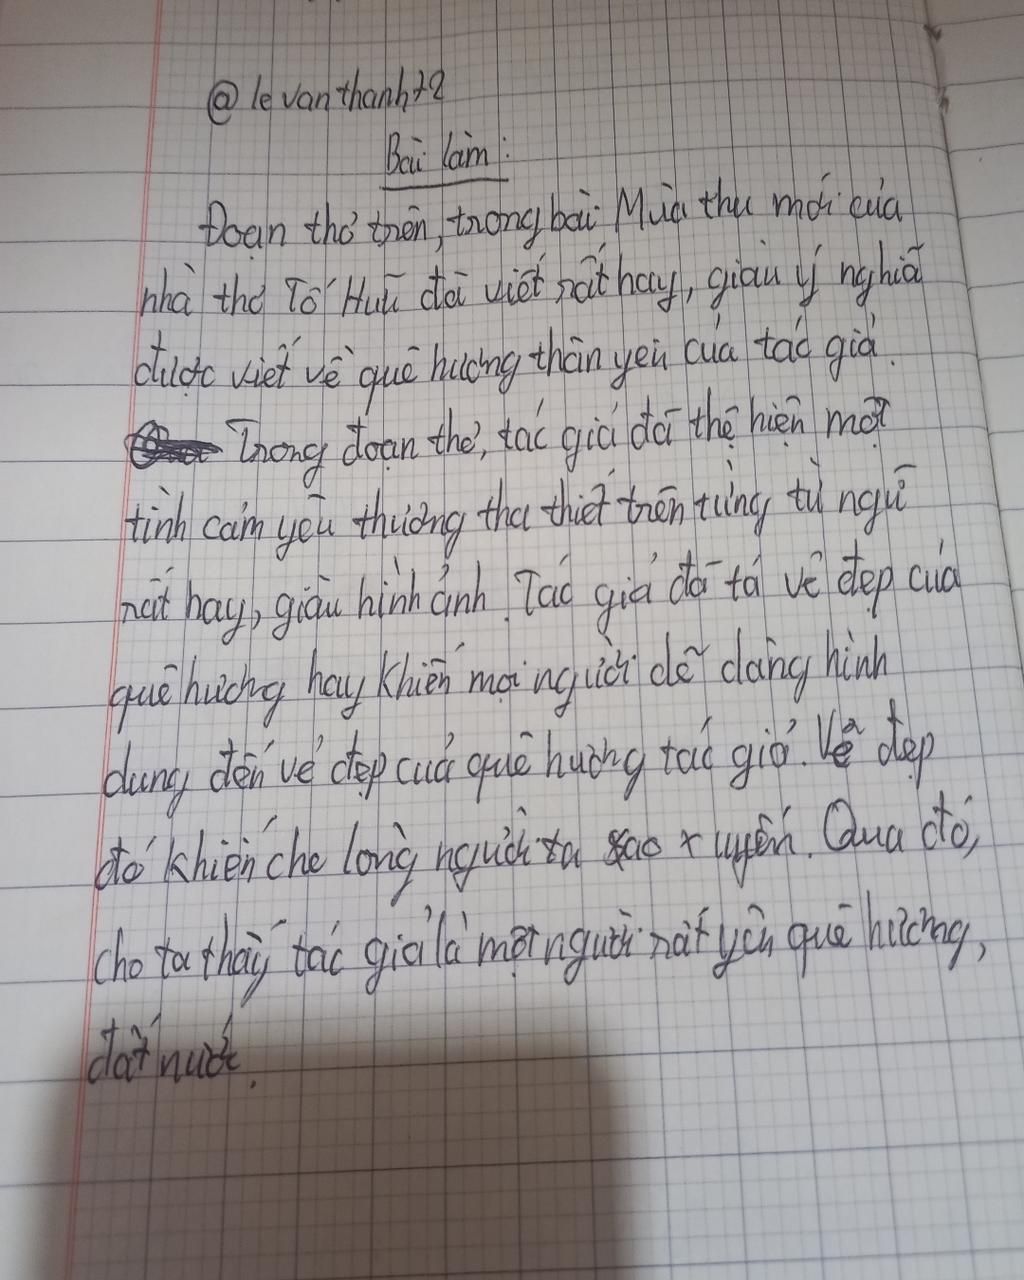 @ levanthanh72
Bài làm:
Đoạn thơ trên, trong bài Mùa thu mới của
nhà thơ Tố Hữu đã viết rất hay, giàu ý nghĩa
được viết về quê hương thân yêu của tác giả.
Trong đoạn thơ, tác giả đã thể hiện một
tình cảm yêu thương tha thiết trên từng từ ngữ
rất hay, giàu hình ảnh. Tác giả đã tả vẻ đẹp của
quê hương hay khiến mọi người dễ dàng hình
dung đến vẻ đẹp của quê hương tác giả. Vẻ đẹp
đó khiến cho lòng người ta xao xuyến. Qua đó,
cho ta thấy tác giả là một người rất yêu quê hương,
đất nước.